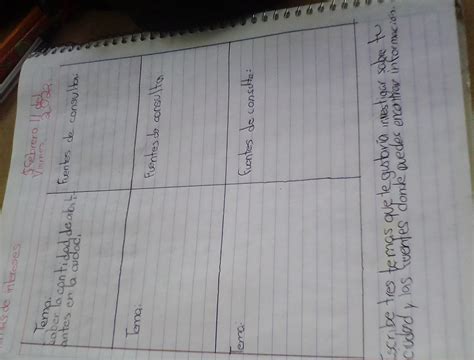 de intereses
Febrero 11 del
2022
Viernes
Tema:
saber la cantidad de habit
antes en la ciudad.
Fuentes de consulta:
Tema:
Fuentes de consulta:
Tema:
Fuentes de consulta:
scribe tres temas que te gustaria investigar sobre tu
ciudad y las fuentes donde puedes encontrar información.